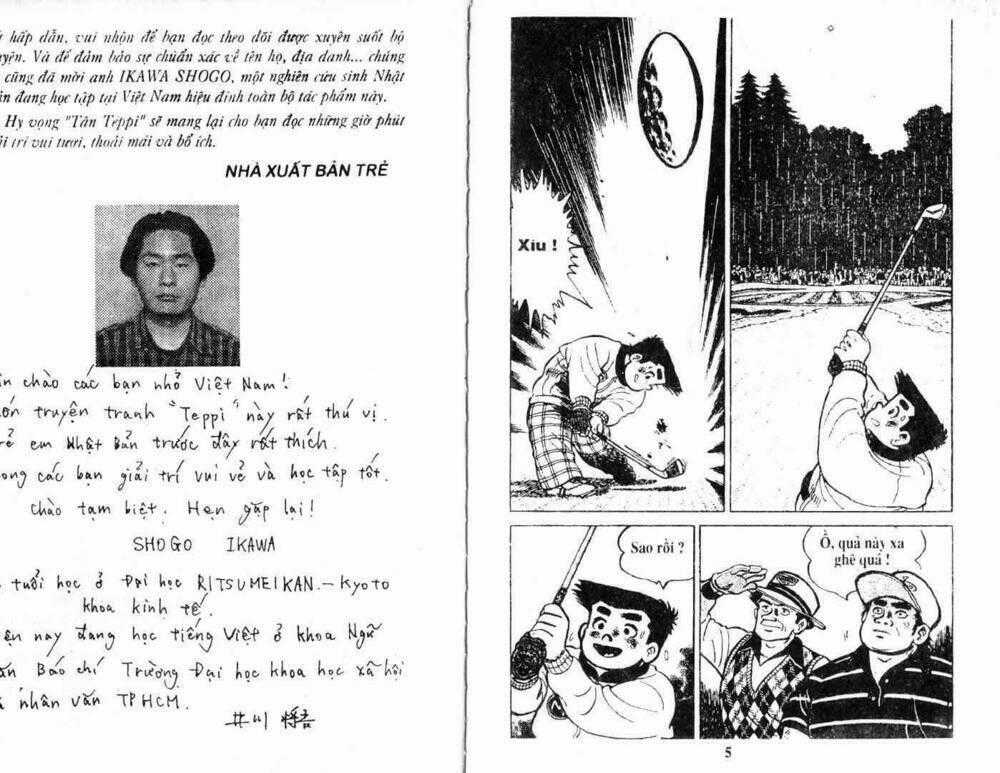 hấp dẫn, vui nhộn để bạn đọc theo dõi được xuyên suốt bộ
Và để đảm bảo sự chuẩn xác về tên họ, địa danh... chúng
cũng đã mời anh IKAWA SHOGO, một nghiên cứu sinh Nhật
đang học tập tại Việt Nam hiệu đính toàn bộ tác phẩm này.
Hy vọng "Tân Teppi" sẽ mang lại cho bạn đọc những giờ phút
trí vui tươi, thoải mái và bổ ích.
NHÀ XUẤT BẢN TRẺ
chào các bạn nhỏ Việt Nam!
truyện tranh "Teppi" này rất thú vị.
em Nhật Bản trước đây rất thích.
các bạn giải trí vui vẻ và học tập tốt.
Chào tạm biệt. Hẹn gặp lại!
SHOGO IKAWA
tuổi học ở Đại học RITSUMEIKAN.-Kyoto
khoa kinh tế.
nay đang học tiếng Việt ở khoa Ngữ
Báo chí Trường Đại học khoa học xã hội
nhân văn TPHCM.
井川 将吾
Xiu !
Sao rồi ?
Ồ, quả này xa
ghê quá !
5